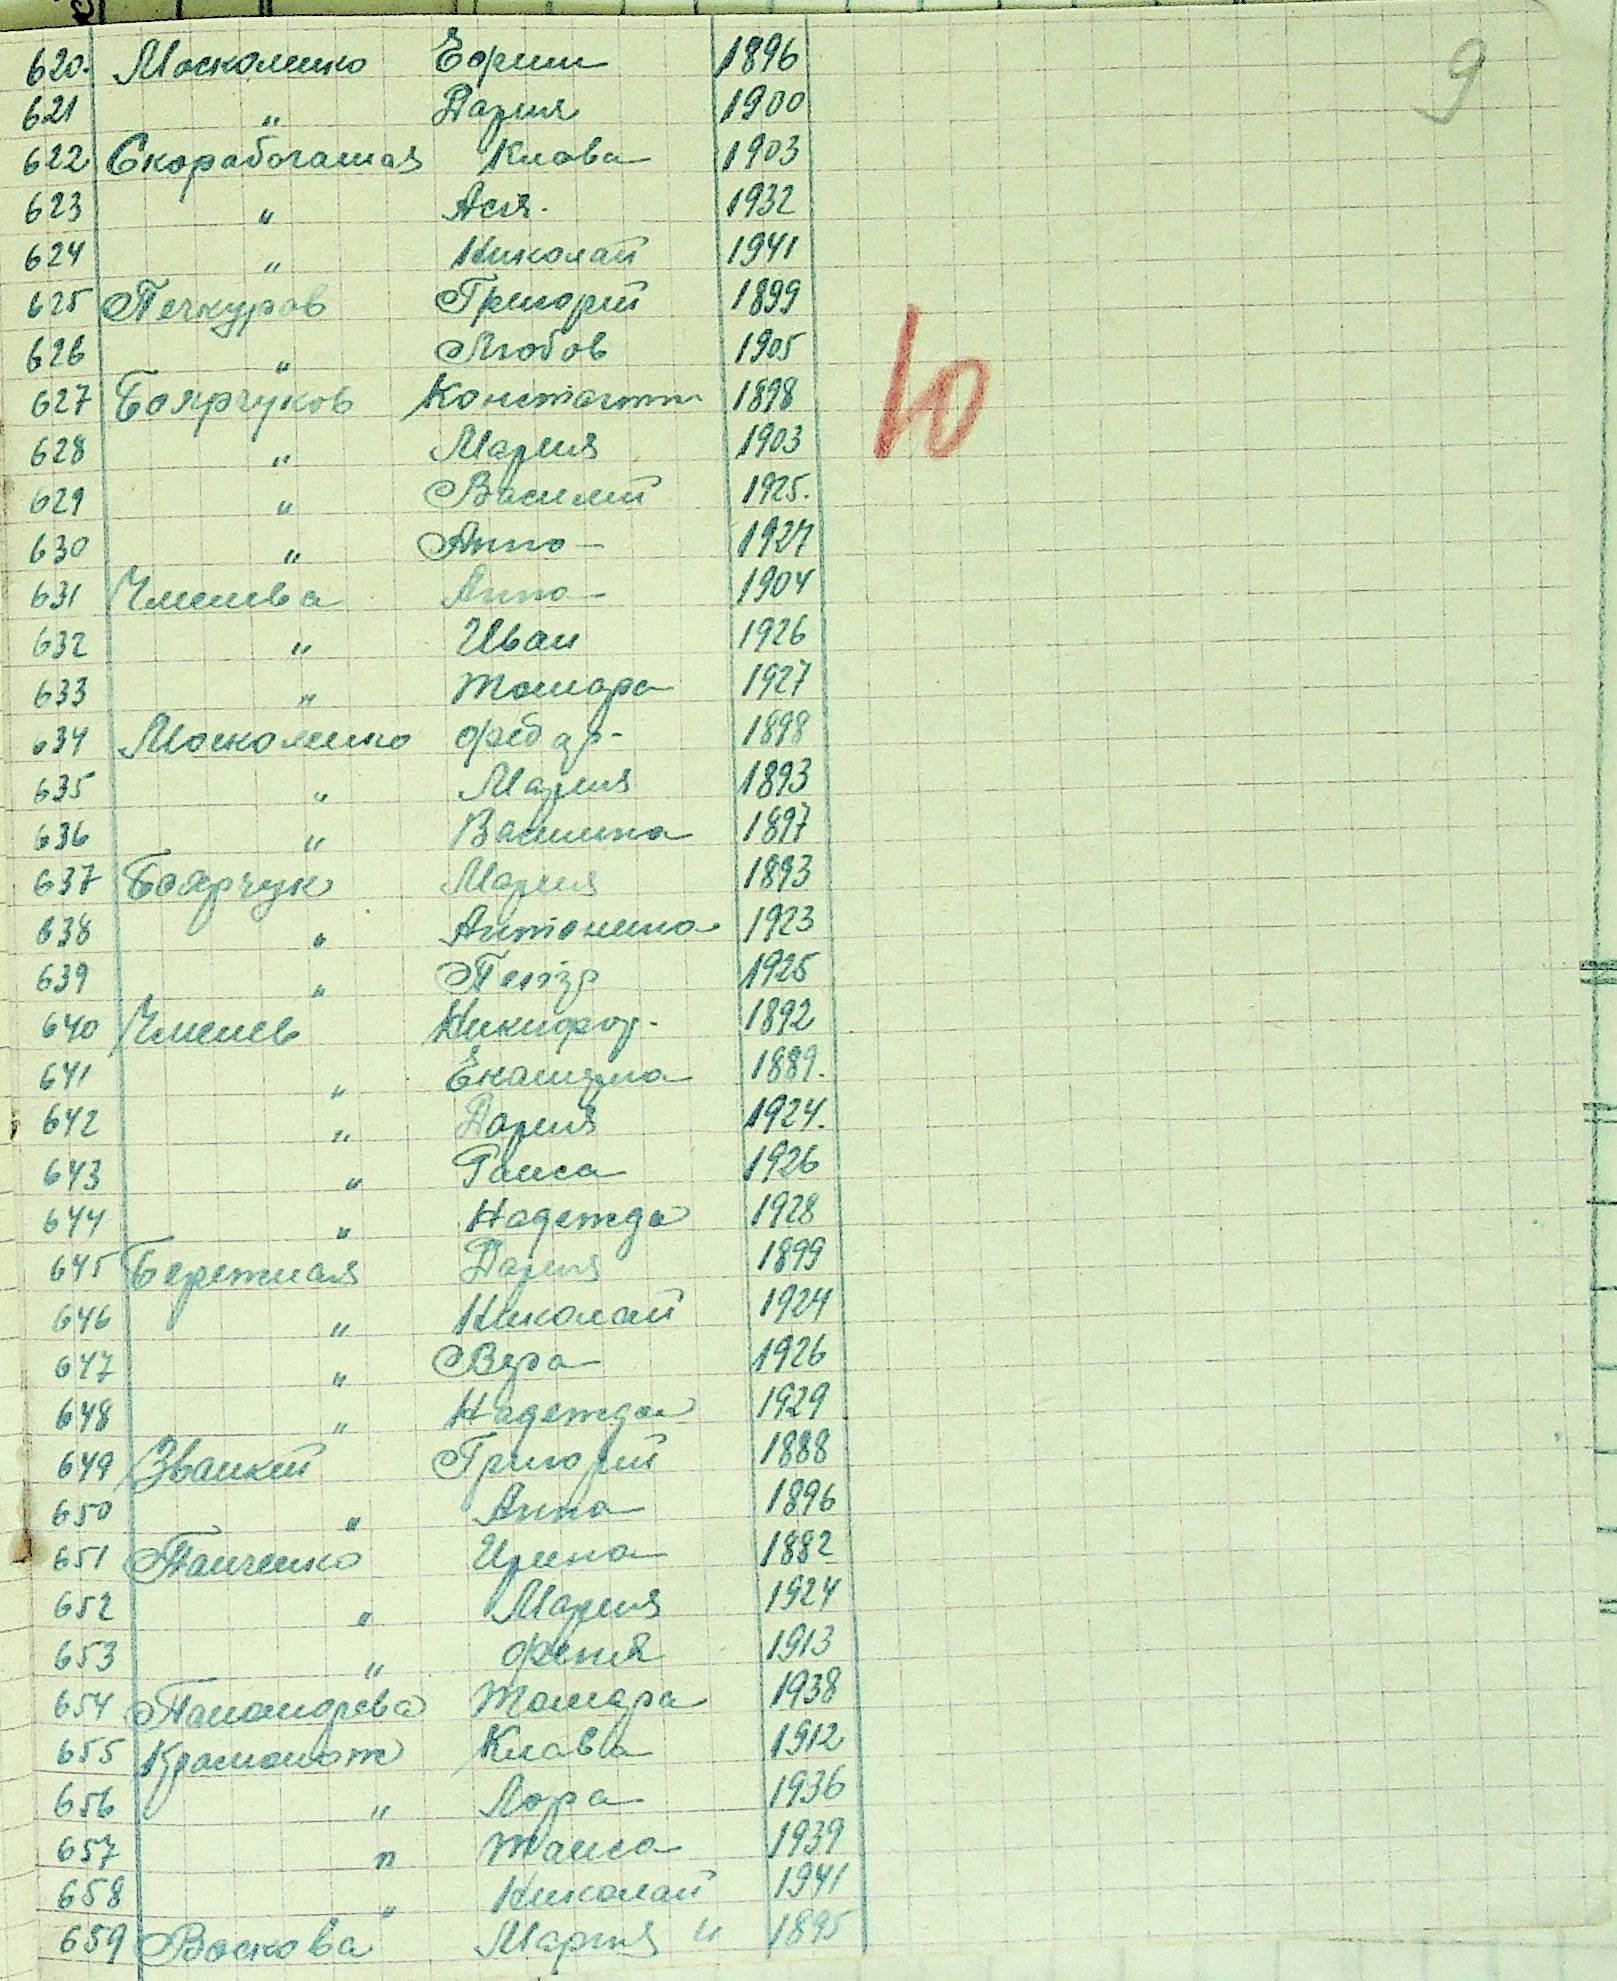 9
620. Москоленко Ефрим 1896
621 " Дария 1900
622 Скорабогатая Клава 1903
623 " Ася. 1932
624 " Николай 1941
625 Печкуров Григорий 1899
626 " Любов 1905
627 Боярчуков Константин 1898
628 " Мария 1903
629 " Василий 1925.
630 " Анна 1927
631 Чмелева Анна 1904
632 " Иван 1926
633 " Тамара 1927
634 Москоленко Федор- 1898
635 " Мария 1893
636 " Василина 1897
637 Боярчук Мария 1893
638 " Антонина 1923
639 " Петр 1925
640 Чмелев Никифор. 1892
641 " Екатерина 1889.
642 " Дария 1924.
643 " Раиса 1926
644 " Надежда 1928
645 Бережная Дария 1899
646 " Николай 1924
647 " Вера 1926
648 " Надежда 1929
649 Званкий Григорий 1888
650 " Анна 1896
651 Панченко Ирина 1882
652 " Мария 1924
653 " Феня 1913
654 Панамарева Тамара 1938
655 Клава 1912
656 " Лора 1936
657 " Таиса 1939
658 " Николай 1941
659 Воскова Мария " 1895
Ю